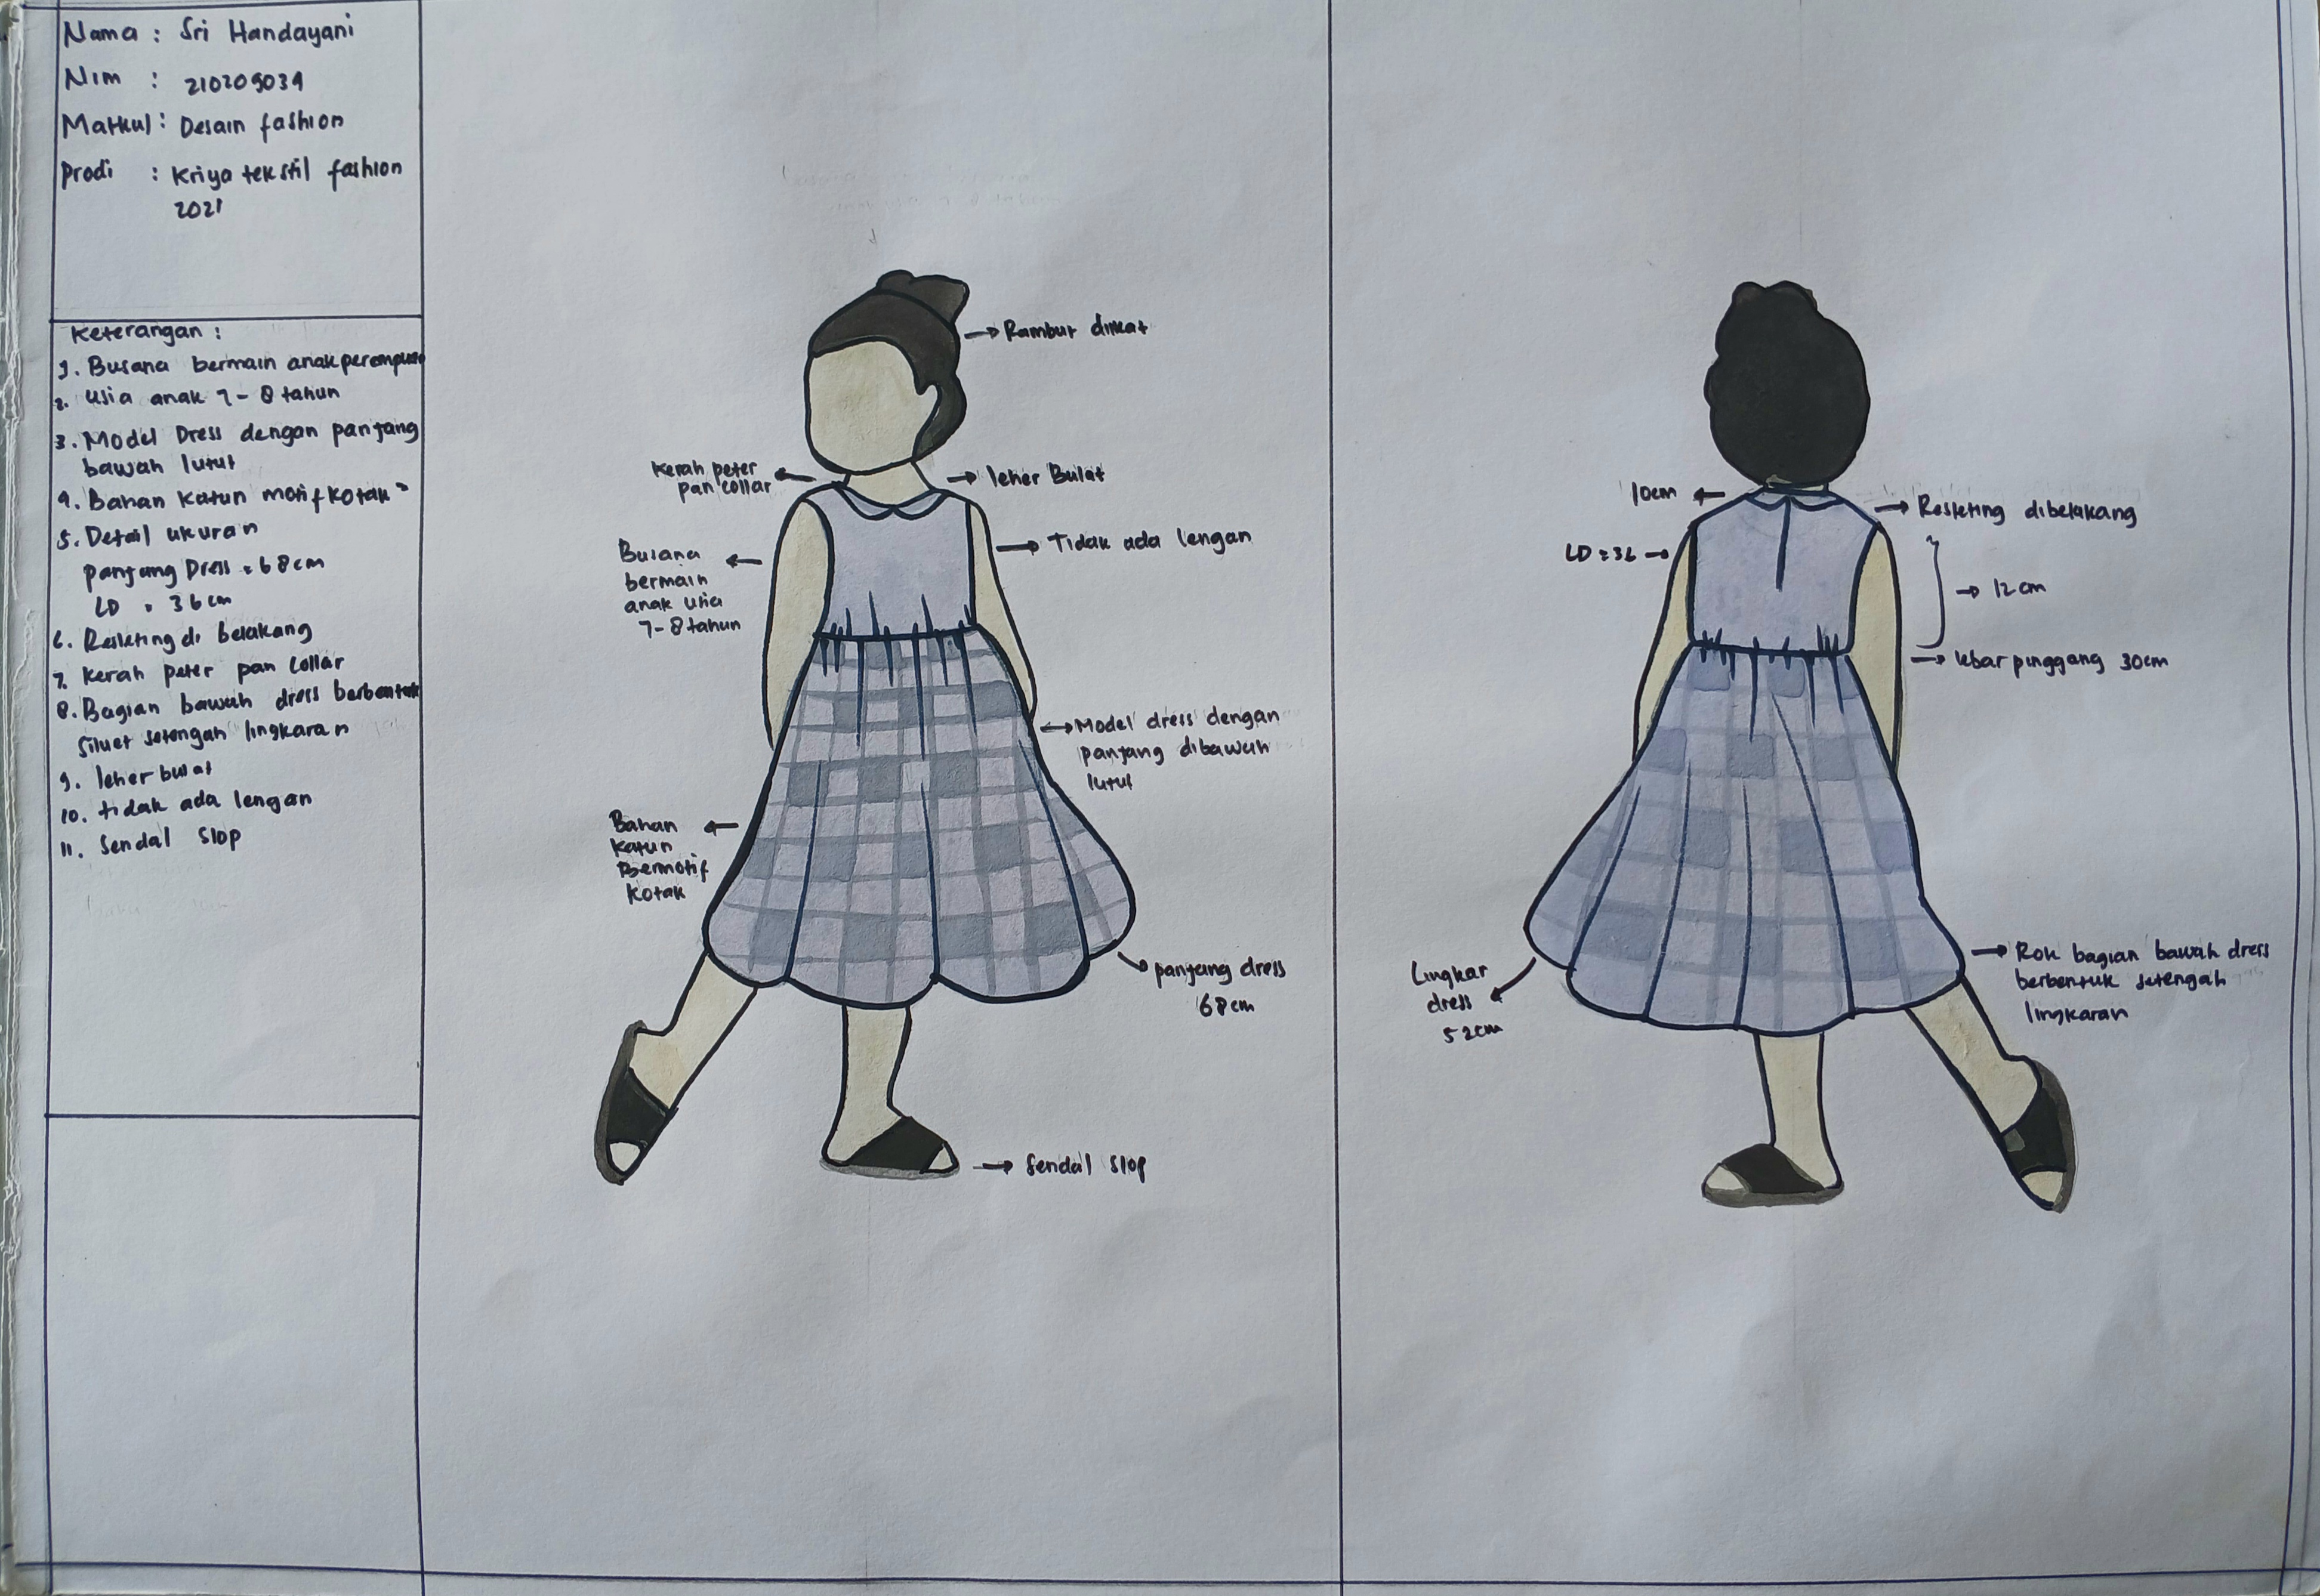 Nama : Sri Handayani
Nim : 210209039
Matkul : Desain fashion
Prodi : Kriya tekstil fashion
2021
Keterangan :
1. Busana bermain anak perempuan
2. Usia anak 7 - 8 tahun
3. Model Dress dengan panjang
bawah lutut
4. Bahan Katun motif kotak²
5. Detail ukuran
panjang Dress = 68 cm
LD = 36 cm
6. Resleting di belakang
7. Kerah peter pan collar
8. Bagian bawah dress berbentuk
siluet setengah lingkaran
9. leher bulat
10. tidak ada lengan
11. Sendal Slop
Rambut diikat
Kerah peter
pan collar
leher Bulat
Tidak ada lengan
Busana
bermain
anak usia
7-8 tahun
Model dress dengan
panjang dibawah
lutut
Bahan
katun
Bermotif
kotak
panjang dress
68 cm
Sendal Slop
10cm
Resleting dibelakang
LD = 36
12 cm
lebar pinggang 30cm
Lingkar
dress
52cm
Rok bagian bawah dress
berbentuk setengah
lingkaran